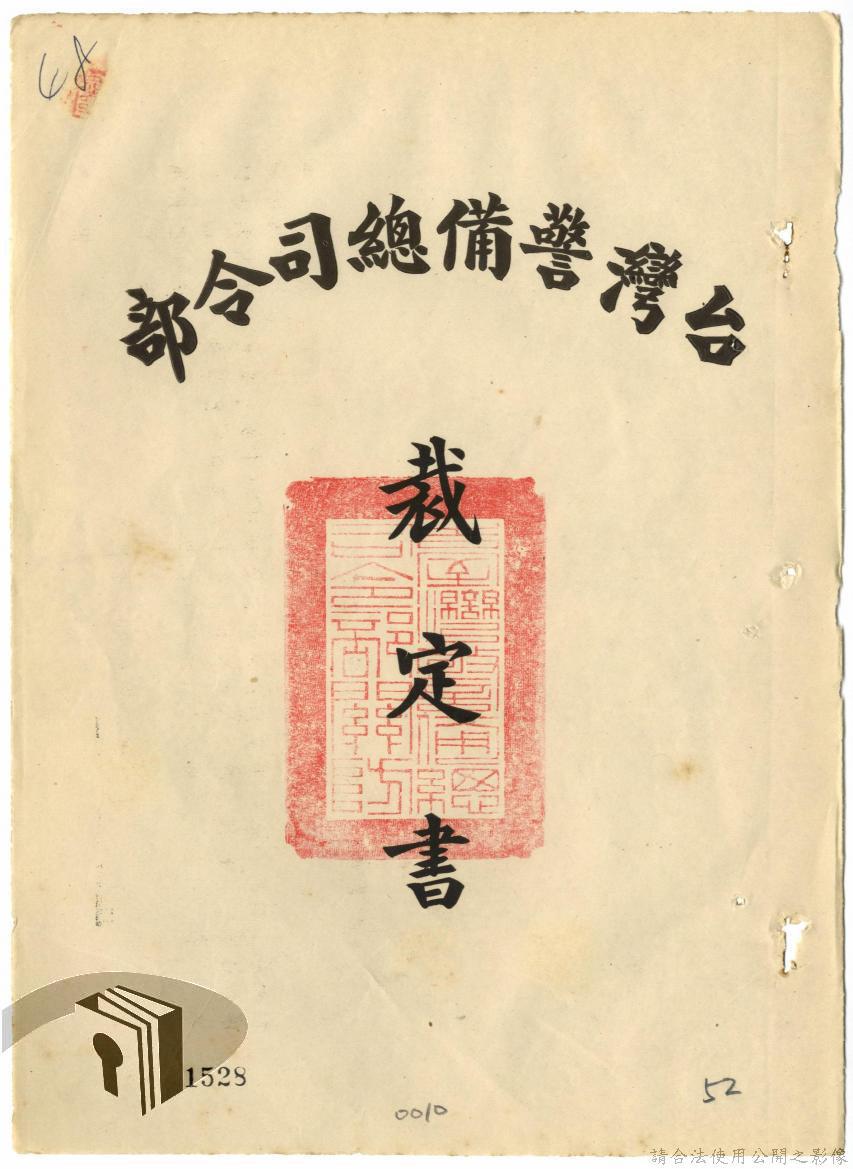 68
台灣警備總司令部
裁定書
1528
0010
52
請合法使用公開之影像